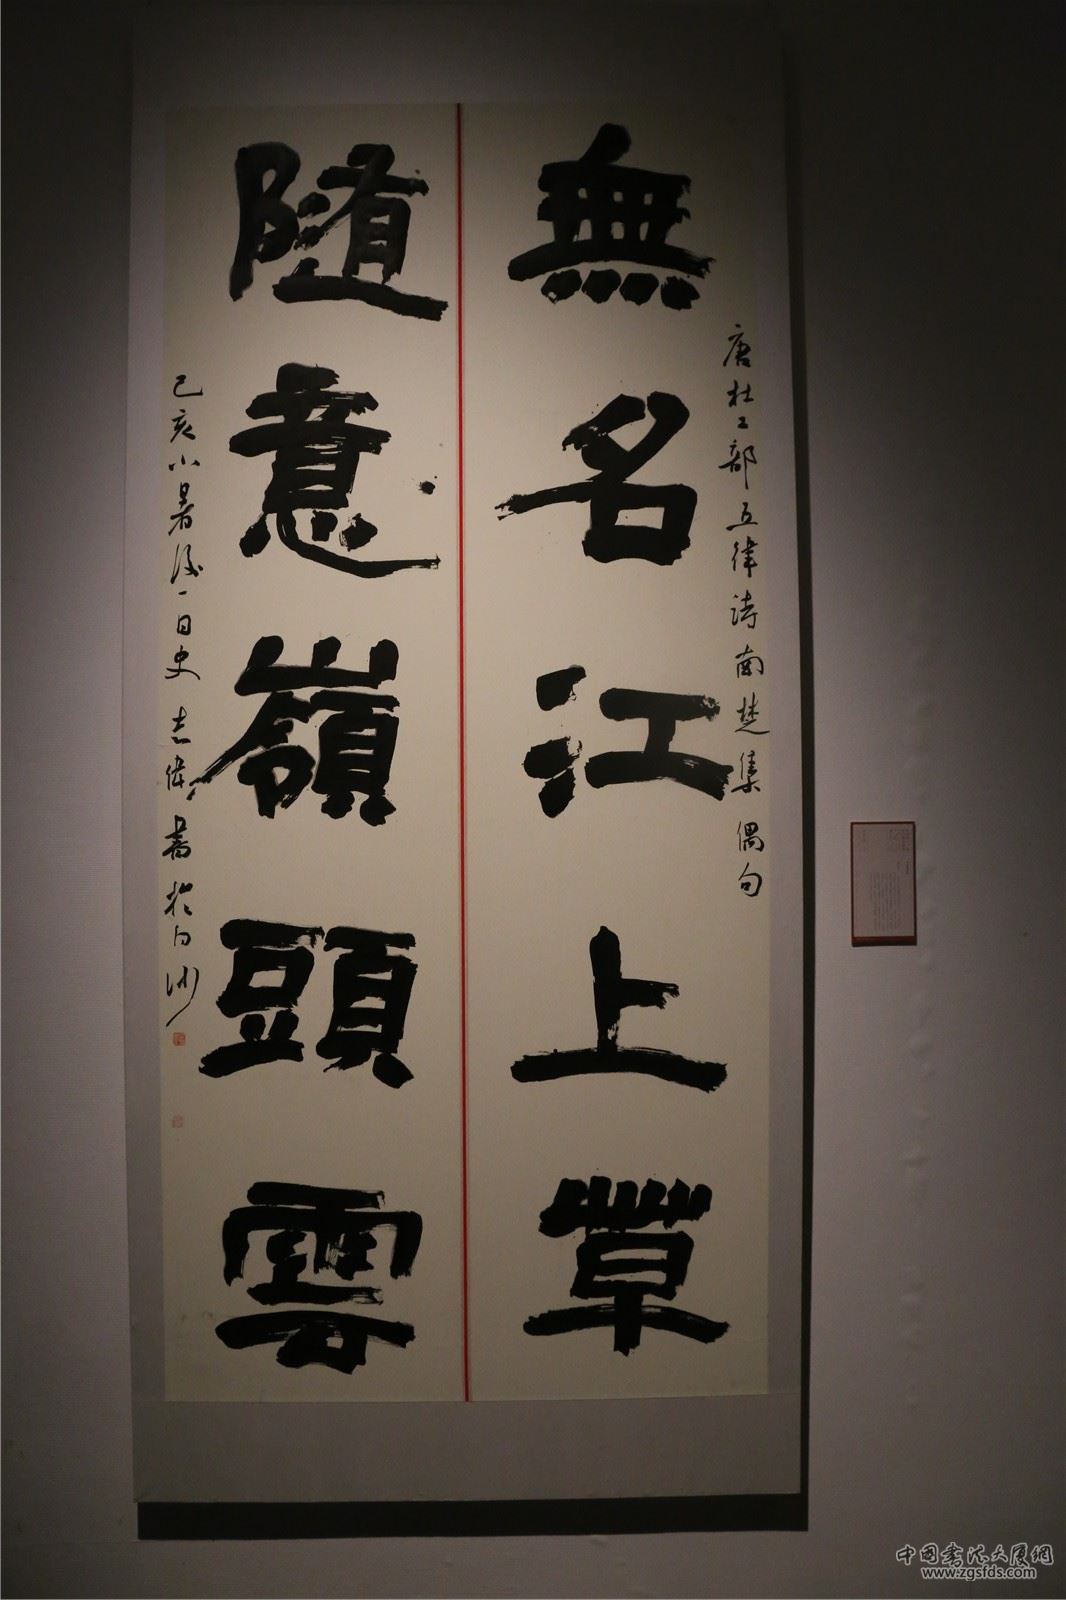 無名江上草
唐杜工部五律詩南楚集偶句
隨意嶺頭雲
己亥小暑後一日史志偉書於白沙
中国书法大厦網
www.zgsfds.com